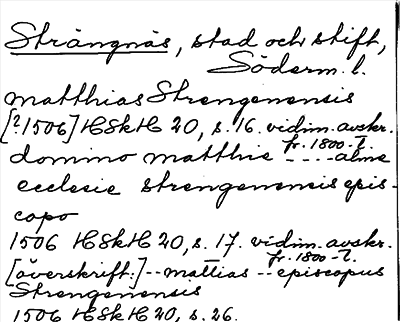 Strängnäs, stad och stift,
Söderm. l.
Matthias Strengenensis
[?1506] HSkH 20, s. 16. vidim. avskr.
fr. 1800-t.
domino matthie ---- alme
ecclesie strengenensis epis-
copo
1506 HSkH 20, s. 17. vidim. avskr.
fr. 1800-t.
[överskrift:] -- mattias -- episcopus
Strengenensis
1506 HSkH 20, s. 26.